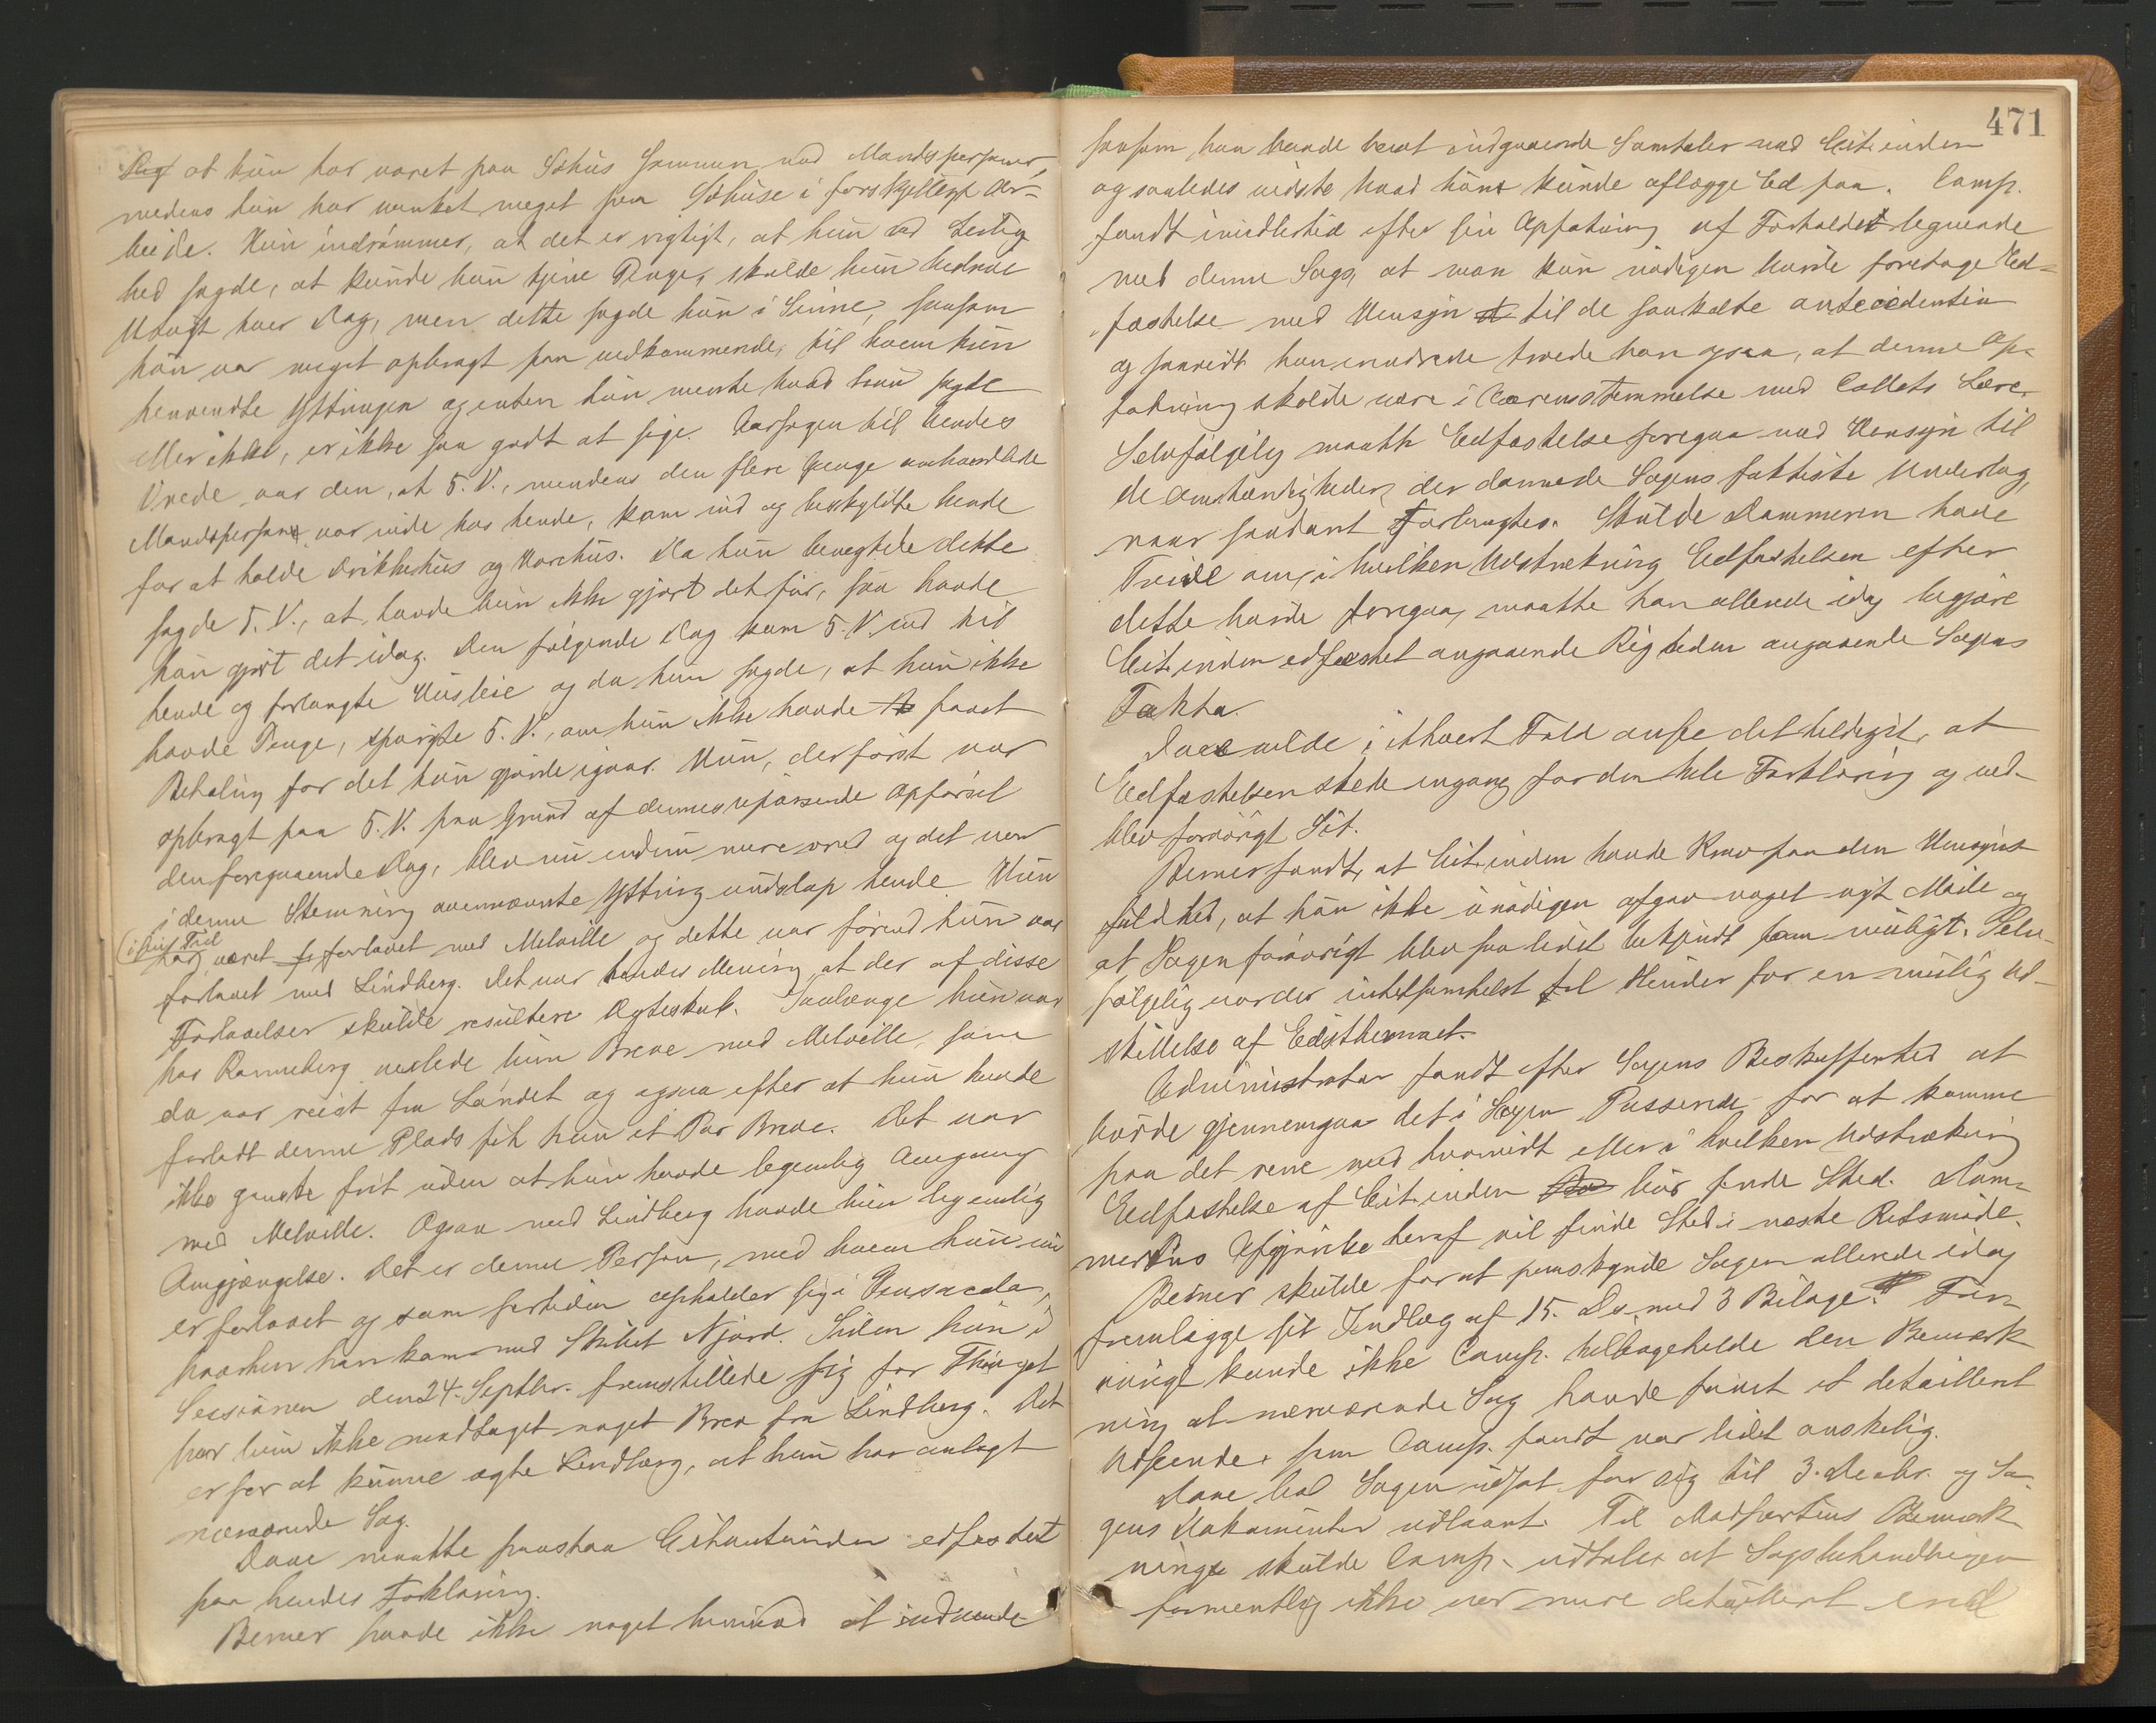 at hun har været paa Söhus sammen med Mandspersoner,
medens hun har vanket meget paa Söhuse i forskjelligt Ar-
beide. Hun indrömmer, at det er rigtigt, at hun ved Leilig
hed sagde, at kunde hun tjene Penge, skulde hun bedrive
Utugt hver Dag, men dette sagde hun i Sinne, saasom
hun var meget opbragt paa vedkommende, til hvem hun
henvendte Yttringen og enten hun mente hvad hun sagde
eller ikke, er ikke saa godt at sige. Aarsagen til hendes
Vrede var den, at T. V., mendens den flere Gange omhandlede
Mandsperson var inde hos hende, kom ind og beskyldte hende
for at holde Drikkehus og Horehus. Da hun benegtede dette
sagde T. V., at havde hun ikke gjort det för, saa havde
hun gjort det idag. Den fölgende Dag kom T. V. ind til
hende og forlangte Husleie og da hun sagde, at hun ikke
havde Penge, spurgte T. V., om hun ikke havde faaet
Betaling for det hun gjorde igaar. Hun, der först var
opbragt paa T. V. paa Grund af dennes upassende Opförsel
den foregaaende Dag, blev nu endnu mere vred og det var
i denne Stemning ovennævnte Yttring undslap hende. Hun
(i sin Tid
har været forlovet med Melville og dette var förend hun var
forlovet med Lindberg. Det var hendes Mening at der af disse
Forlovelser skulde resultere Ægteskab. Saalænge hun var
hos Ranneberg vexlede hun Breve med Melville, som
da var reist fra Landet og ogsaa efter at hun havde
forladt denne Plads fik hun et Par Breve. Det var
ikke ganske frit uden at hun havde legemlig Omgang
med Melville. Ogsaa med Lindberg havde hun legemlig
Omgjængelse. Det er denne Person, med hvem hun nu
er forlovet og som fortiden opholder sig i Pensacola,
hvorhen han kom med Skibet Njord. Siden hun i
Sessionen den 24. Septbr. fremstillede sig for Thinget
har hun ikke modtaget noget Brev fra Lindberg. Det
er for at kunne ægte Lindberg, at hun har anlagt
nærværende Sag.
Daae maatte paastaa Citantinden edfæstet
paa hendes Forklaring.
Berner havde ikke noget herimod at indvende
471
saasom han havde havt indgaaende Samtaler med Citantinden
og saaledes vidste hvad hun kunde aflægge Ed paa. Comp.
fandt imidlertid efter sin Opfatning af Forholdet lignende
med denne Sag, at man kun nödigen burde foretage Ed-
fæstelse med Hensyn til de saakaldte antecedentia
og saavidt han erindrede troede han ogsaa, at denne Op-
fatning skulde være i Overensstemmelse med Collets Lære.
Selvfölgelig maatte Edfæstelse foregaa med Hensyn til
de Omstændigheder, der dannede Sagens faktiske Underlag,
naar saadant forlangtes. Skulde Dommeren have
Tvivl om, i hvilken Udstrækning Edfæstelsen efter
dette burde foregaa, maatte han allerede idag begjære
Citantinden edfæstet angaaende Rigtigheden angaaende Sagens
Fakta.
Daae vilde i ethvert Fald anse det heldigst, at
Edfæstelsen skede engang for den hele Forklaring og ved-
blev forövrigt Sit.
Berner fandt, at Citantinden havde Krav paa den Hensyns-
fuldhed, at hun ikke unödigen afgav noget nyt Möde og
at Sagen forövrigt blev saa lidet bekjendt som muligt. Selv-
fölgelig var der intetsomhelst til Hinder for en mulig Ud-
skillelse af Edsthemaet.
Administrator fandt efter Sagens Beskaffenhed at
burde gjennemgaa det i Sagen Passerede for at komme
paa det rene med hvorvidt eller i hvilken Udstrækning
Edfæstelse af Citantinden bör finde Sted. Dom-
merens Afgjörelse heraf vil finde Sted i næste Retsmöde.
Berner skulde for at paaskynde Sagen allerede idag
fremlægge sit Indlæg af 15. Ds. med 3 Bilage. For-
övrigt kunde ikke Comp. tilbageholde den Bemærk-
ning at nærværende Sag havde faaet et detailleret
Udseende, som Comp. fandt var lidet önskelig.
Daae bad Sagen udsat for sig til 3. Decbr. og Sa-
gens Dokumenter udlaant. Til Modpartens Bemærk-
ning skulde Comp. udtale, at Sagsbehandlingen
formentlig ikke var mere detailleret end